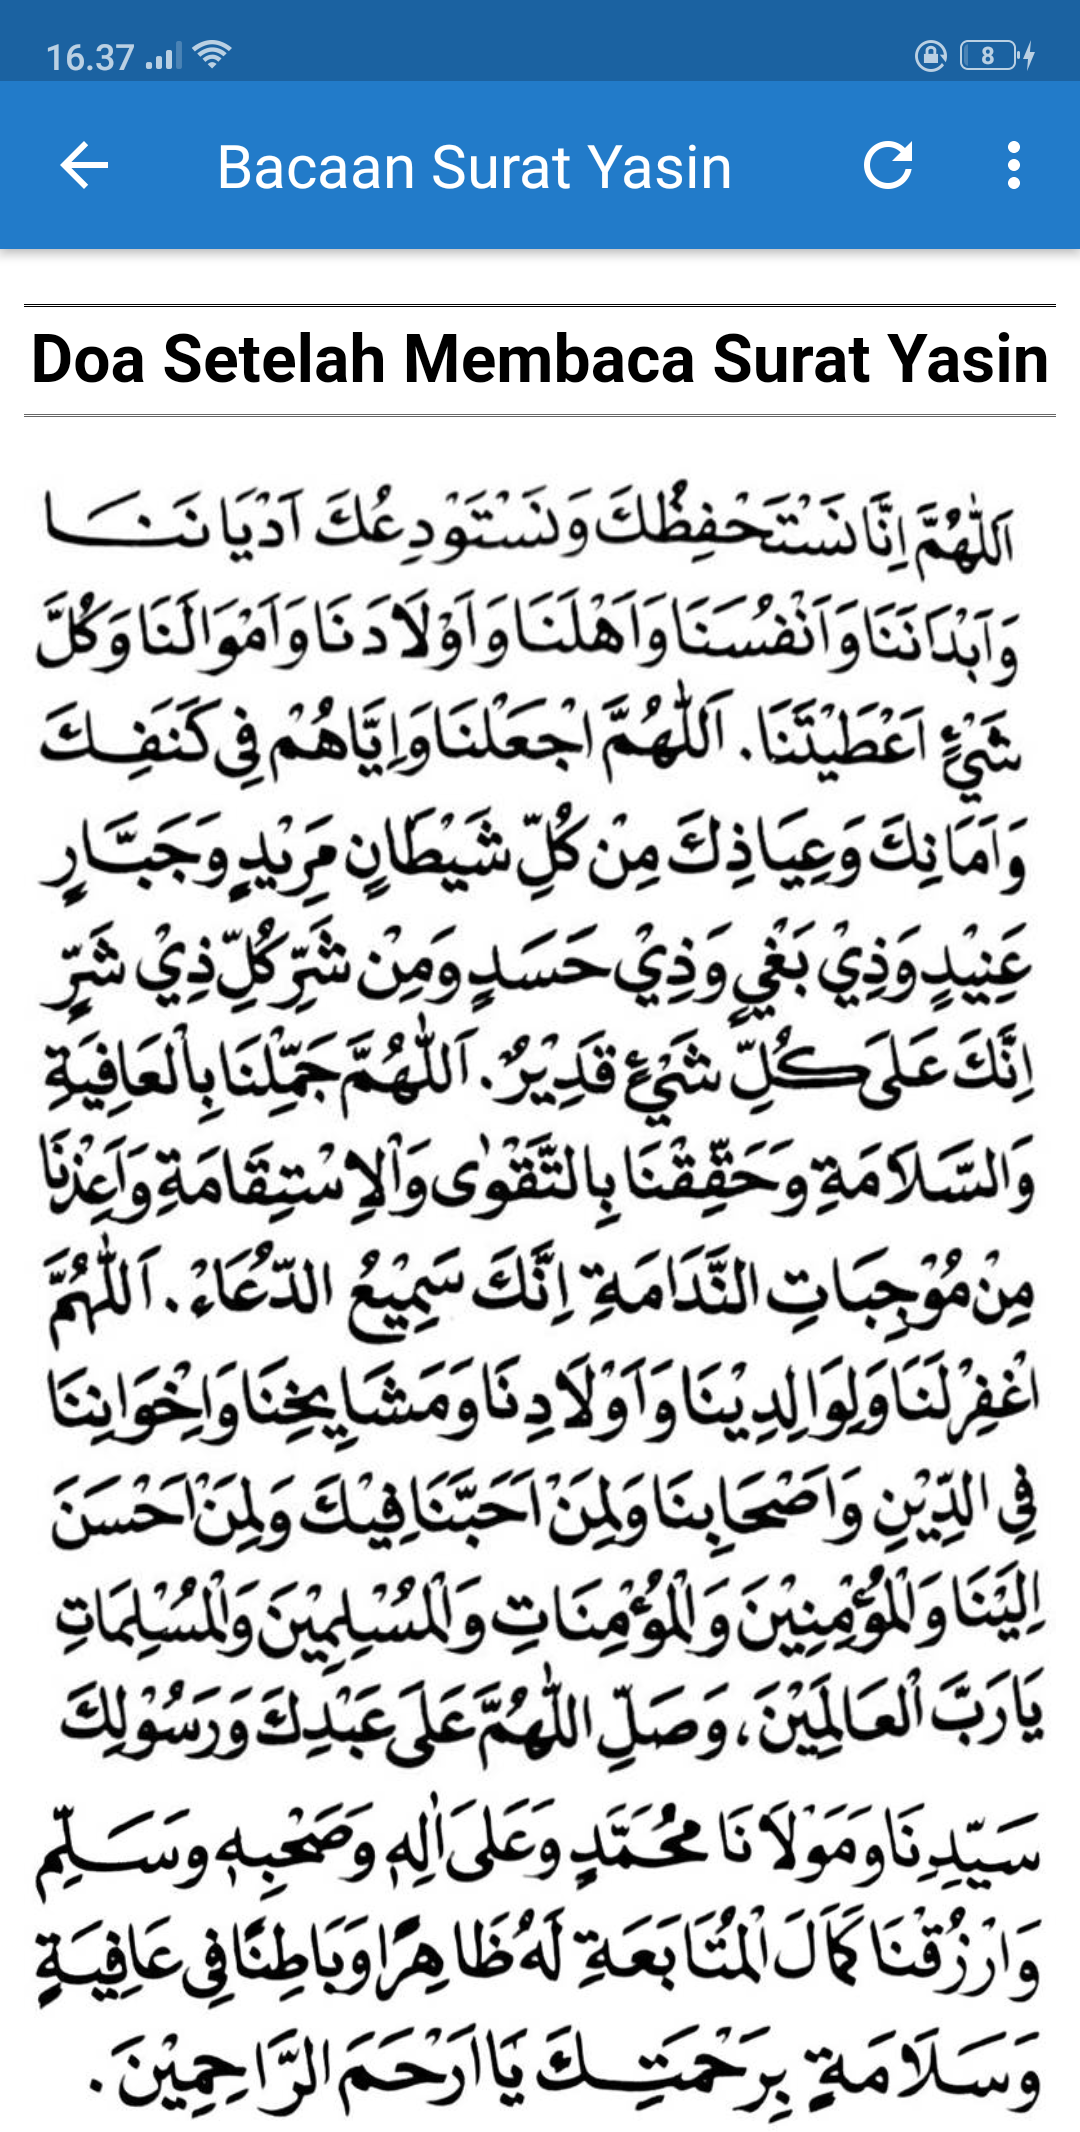 16.37
8
Bacaan Surat Yasin
Doa Setelah Membaca Surat Yasin
اَللّٰهُمَّ اِنَّا نَسْتَحْفِظُكَ وَنَسْتَوْدِعُكَ اَدْيَانَنَا
وَاَبْدَانَنَا وَاَنْفُسَنَا وَاَهْلَنَا وَاَوْلَادَنَا وَاَمْوَالَنَا وَكُلَّ
شَيْءٍ اَعْطَيْتَنَا. اَللّٰهُمَّ اجْعَلْنَا وَاِيَّاهُمْ فِي كَنَفِكَ
وَاَمَانِكَ وَعِيَاذِكَ مِنْ كُلِّ شَيْطَانٍ مِرَيْدٍ وَجَبَّارٍ
عَنِيْدٍ وَذِيْ بَغْيٍ وَذِيْ حَسَدٍ وَمِنْ شَرِّ كُلِّ ذِيْ شَرٍّ
اِنَّكَ عَلَى كُلِّ شَيْءٍ قَدِيْرٌ. اَللّٰهُمَّ جَمِّلْنَا بِالْعَافِيَةِ
وَالسَّلَامَةِ وَحَقِّقْنَا بِالتَّقْوٰى وَالْاِسْتِقَامَةِ وَاَعِذْنَا
مِنْ مُوْجِبَاتِ النَّدَامَةِ اِنَّكَ سَمِيْعُ الدُّعَاءْ. اَللّٰهُمَّ
اغْفِرْلَنَا وَلِوَالِدِيْنَا وَاَوْلَادِنَا وَمَشَايِخِنَا وَاِخْوَانِنَا
فِي الدِّيْنِ وَاَصْحَابِنَا وَلِمَنْ اَحَبَّنَا فِيْكَ وَلِمَنْ اَحْسَنَ
اِلَيْنَا وَالْمُؤْمِنِيْنَ وَالْمُؤْمِنَاتِ وَالْمُسْلِمِيْنَ وَالْمُسْلِمَاتِ
يَارَبَّ الْعَالَمِيْنَ، وَصَلِّ اللّٰهُمَّ عَلَى عَبْدِكَ وَرَسُوْلِكَ
سَيِّدِنَا وَمَوْلَانَا مُحَمَّدٍ وَعَلَى اٰلِهِ وَصَحْبِهِ وَسَلِّمْ
وَارْزُقْنَا كَمَالَ الْمُتَابَعَةِ لَهُ ظَاهِرًا وَبَاطِنًا فِي عَافِيَةٍ
وَسَلَامَةٍ بِرَحْمَتِكَ يَااَرْحَمَ الرَّاحِمِيْنَ.